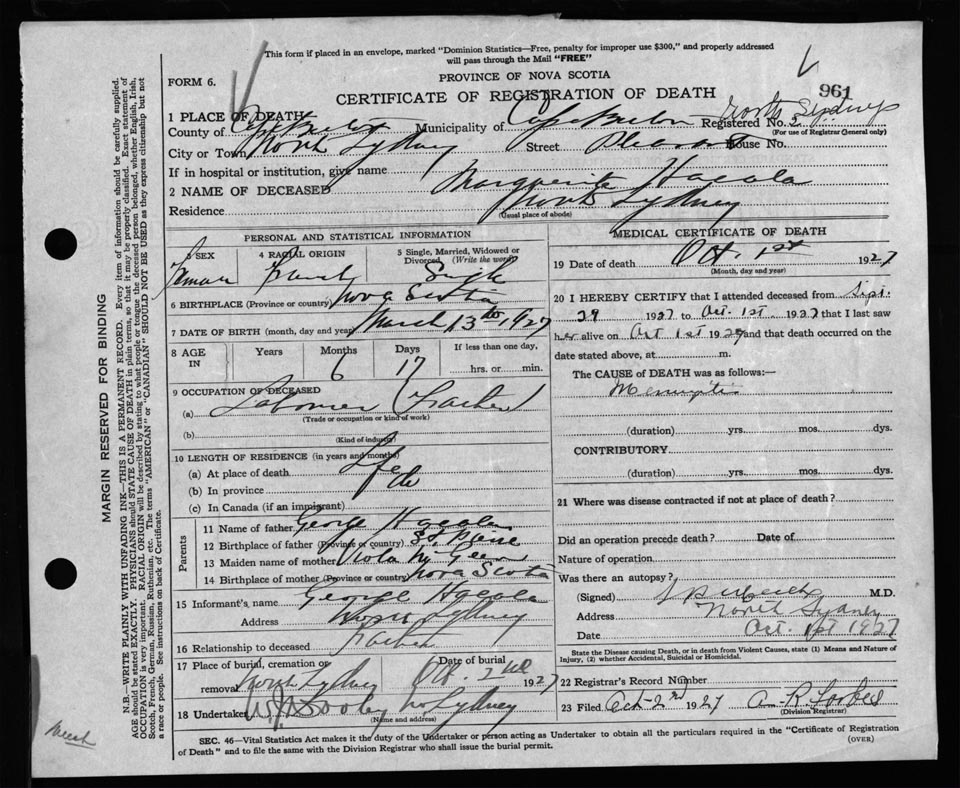 This form if placed in an envelope, marked "Dominion Statistics—Free, penalty for improper use $300," and properly addressed
will pass through the Mail "FREE"
FORM 6.
PROVINCE OF NOVA SCOTIA
961
CERTIFICATE OF REGISTRATION OF DEATH
North Sydney
1 PLACE OF DEATH
County of Cape Breton Municipality of Cape Breton Registered No.
(For use of Registrar General only)
City or Town North Sydney Street Pleasant House No.
If in hospital or institution, give name
2 NAME OF DECEASED Marguerite
Residence North Sydney
(Usual place of abode)
PERSONAL AND STATISTICAL INFORMATION
3 SEX
4 RACIAL ORIGIN
5 Single, Married, Widowed or
Divorced (Write the word)
Female French Single
6 BIRTHPLACE (Province or country) Nova Scotia
7 DATE OF BIRTH (month, day and year) March 13th 1927
8 AGE IN Years Months 6 Days 17 If less than one day,
hrs. or min.
9 OCCUPATION OF DECEASED
(a) Labourer (Father)
(Trade or occupation or kind of work)
(b)
(Kind of industry)
10 LENGTH OF RESIDENCE (in years and months)
(a) At place of death Life
(b) In province do
(c) In Canada (if an immigrant)
Parents
11 Name of father George
12 Birthplace of father (Province or country) St. Pierre
13 Maiden name of mother Viola
14 Birthplace of mother (Province or country) Nova Scotia
15 Informant's name George
Address North Sydney
16 Relationship to deceased Father
17 Place of burial, cremation or
removal North Sydney
Date of burial
Oct. 2nd 1927
18 Undertaker N Sydney
(Name and address)
MEDICAL CERTIFICATE OF DEATH
19 Date of death Oct. 1st 1927
(Month, day and year)
20 I HEREBY CERTIFY that I attended deceased from Sept.
29 1927 to Oct. 1st. 1927 that I last saw
her alive on Oct 1st 1927 and that death occurred on the
date stated above, at m.
The CAUSE of DEATH was as follows:—
Meningitis
(duration) yrs. mos. dys.
CONTRIBUTORY
(duration) yrs. mos. dys.
21 Where was disease contracted if not at place of death?
Did an operation precede death? Date of
Nature of operation
Was there an autopsy?
(Signed) M.D.
Address North Sydney
Date Oct. 1st 1927
State the Disease causing Death, or in death from Violent Causes, state (1) Means and Nature of
Injury, (2) whether Accidental, Suicidal or Homicidal.
22 Registrar's Record Number
23 Filed Oct-2nd 1927 A. R. Forbes
(Division Registrar)
SEC. 46—Vital Statistics Act makes it the duty of the Undertaker or person acting as Undertaker to obtain all the particulars required in the "Certificate of Registration
of Death" and to file the same with the Division Registrar who shall issue the burial permit.
(OVER)
MARGIN RESERVED FOR BINDING
N.B.—WRITE PLAINLY WITH UNFADING INK—THIS IS A PERMANENT RECORD. Every item of information should be carefully supplied.
AGE should be stated EXACTLY. PHYSICIANS should STATE CAUSE OF DEATH in plain terms, so that it may be properly classified. Exact statement of
OCCUPATION is very important. RACIAL ORIGIN will be described by stating to what people or tongue the deceased person belonged, whether English, Irish,
Scotch, French, German, Russian, Ruthenian, etc. The terms "AMERICAN" or "CANADIAN" SHOULD NOT BE USED as they express citizenship but not
a race or people. See instructions on back of Certificate.